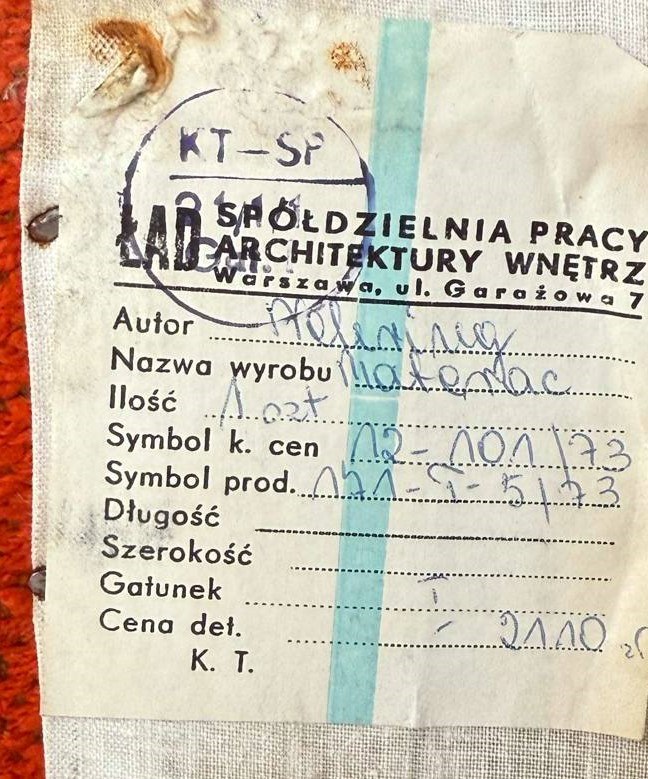 KT-SP
ŁAD SPÓŁDZIELNIA PRACY
ARCHITEKTURY WNĘTRZ
Warszawa, ul. Garażowa 7
Autor
Nazwa wyrobu Materac
Ilość 1 szt
Symbol k. cen 12-101/73
Symbol prod. 171-T-5/73
Długość
Szerokość
Gatunek I
Cena det. 2110 zł
K. T.